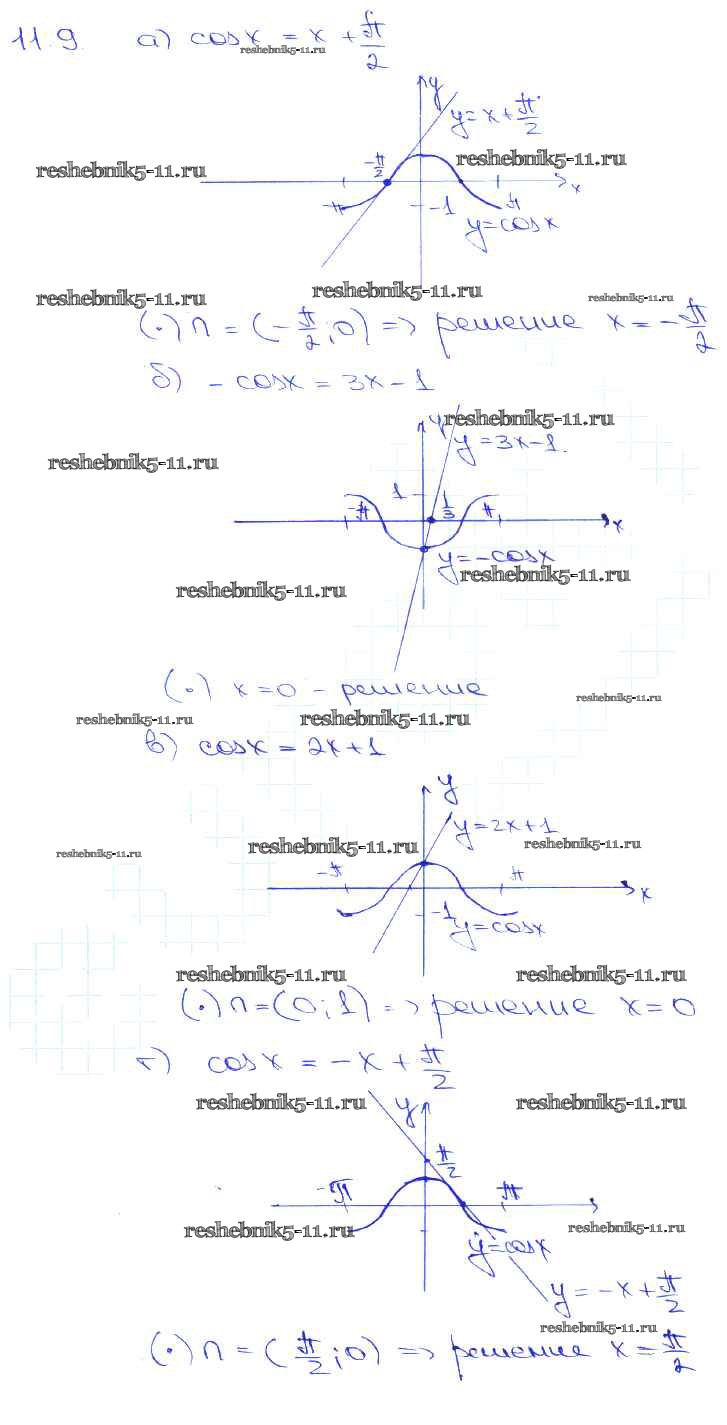 11.9. а) cosx = x + π/2
reshebnik5-11.ru
y
y = x + π/2
reshebnik5-11.ru
-π/2
reshebnik5-11.ru
x
-π
-1
π
y = cosx
reshebnik5-11.ru
reshebnik5-11.ru
reshebnik5-11.ru
(·) п = (-π/2; 0) => решение x = -π/2
б) - cosx = 3x - 1
y
reshebnik5-11.ru
y = 3x - 1.
reshebnik5-11.ru
1
-π
1/3
π
x
y = -cosx
reshebnik5-11.ru
reshebnik5-11.ru
(·) x = 0 - решение
reshebnik5-11.ru
reshebnik5-11.ru
reshebnik5-11.ru
в) cosx = 2x + 1
y
y = 2x + 1
reshebnik5-11.ru
reshebnik5-11.ru
reshebnik5-11.ru
-π
π
x
-1
y = cosx
reshebnik5-11.ru
reshebnik5-11.ru
(·) п = (0; 1) => решение x = 0
г) cosx = -x + π/2
reshebnik5-11.ru
y
reshebnik5-11.ru
π/2
-π
π
reshebnik5-11.ru
reshebnik5-11.ru
y = cosx
y = -x + π/2
reshebnik5-11.ru
(·) п = (π/2; 0) => решение x = π/2